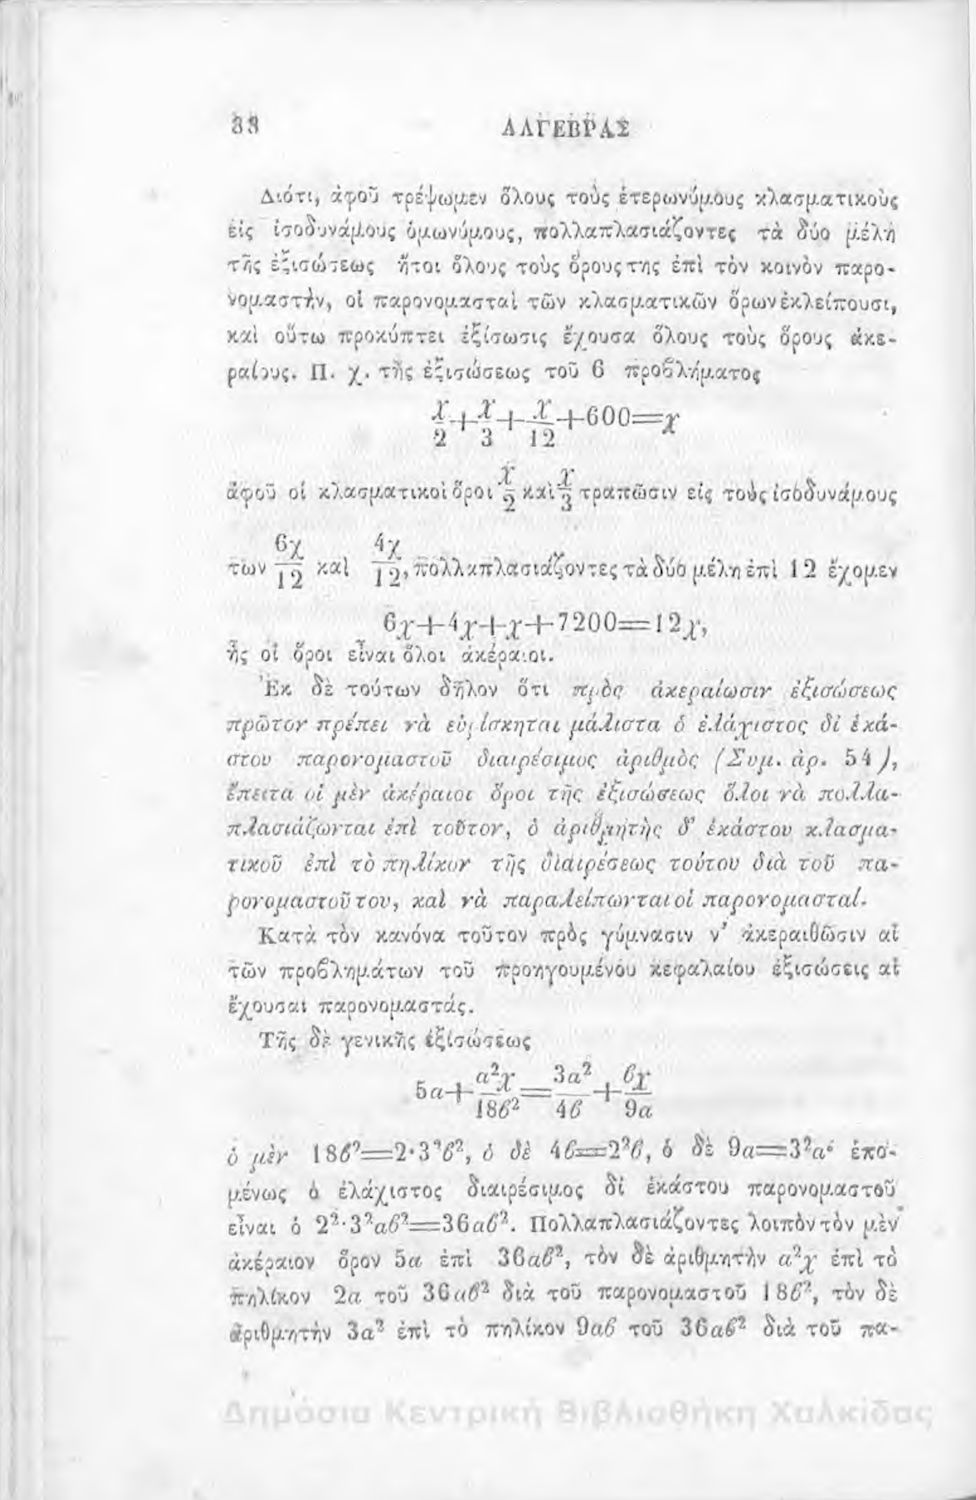 38 ΑΛΓΕΒΡΑΣ
Διότι, ἀφοῦ τρέψωμεν ὅλους τοὺς ἑτερωνύμους κλασματικοὺς
εἰς ἰσοδυνάμους ὁμωνύμους, πολλαπλασιάζοντες τὰ δύο μέλη
τῆς ἐξισώσεως ἤτοι ὅλους τοὺς ὅρους της ἐπὶ τὸν κοινὸν παρο-
νομαστὴν, οἱ παρονομασταὶ τῶν κλασματικῶν ὅρων ἐκλείπουσι,
καὶ οὕτω προκύπτει ἐξίσωσις ἔχουσα ὅλους τοὺς ὅρους ἀκε-
ραίους. Π. χ. τῆς ἐξισώσεως τοῦ 6 προβλήματος
χ/2+χ/3+χ/12+600=χ
ἀφοῦ οἱ κλασματικοὶ ὅροι χ/2 καὶ χ/3 τραπῶσιν εἰς τοὺς ἰσοδυνάμους
των 6χ/12 καὶ 4χ/12, πολλαπλασιάζοντες τὰ δύο μέλη ἐπὶ 12 ἔχομεν
6χ+4χ+χ+7200=12χ,
ἧς οἱ ὅροι εἶναι ὅλοι ἀκέραιοι.
Ἐκ δὲ τούτων δῆλον ὅτι πρὸς ἀκεραίωσιν ἐξισώσεως
πρῶτον πρέπει νὰ εὑρίσκηται μάλιστα ὁ ἐλάχιστος δι' ἑκά-
στου παρονομαστοῦ διαιρέσιμος ἀριθμὸς (Συμ. ἀρ. 54),
ἔπειτα οἱ μὲν ἀκέραιοι ὅροι τῆς ἐξισώσεως ὅλοι νὰ πολλα-
πλασιάζωνται ἐπὶ τοῦτον, ὁ ἀριθμητὴς δ' ἑκάστου κλασμα-
τικοῦ ἐπὶ τὸ πηλίκον τῆς διαιρέσεως τούτου διὰ τοῦ πα-
ρονομαστοῦ του, καὶ νὰ παραλείπωνται οἱ παρονομασταί.
Κατὰ τὸν κανόνα τοῦτον πρὸς γύμνασιν ν' ἀκεραιθῶσιν αἱ
τῶν προβλημάτων τοῦ προηγουμένου κεφαλαίου ἐξισώσεις αἱ
ἔχουσαι παρονομαστάς.
Τῆς δὲ γενικῆς ἐξισώσεως
5α+α²χ/18β²=3α²/4β+βχ/9α
ὁ μὲν 18β²=2·3²β², ὁ δὲ 4β=2²β, ὁ δὲ 9α=3²α· ἑπο-
μένως ὁ ἐλάχιστος διαιρέσιμος δι' ἑκάστου παρονομαστοῦ
εἶναι ὁ 2²·3²αβ²=36αβ². Πολλαπλασιάζοντες λοιπὸν τὸν μὲν
ἀκέραιον ὅρον 5α ἐπὶ 36αβ², τὸν δὲ ἀριθμητὴν α²χ ἐπὶ τὸ
πηλίκον 2α τοῦ 36αβ² διὰ τοῦ παρονομαστοῦ 18β², τὸν δὲ
ἀριθμητὴν 3α² ἐπὶ τὸ πηλίκον 9αβ τοῦ 36αβ² διὰ τοῦ πα-
Δημόσια Κεντρική Βιβλιοθήκη Χαλκίδας